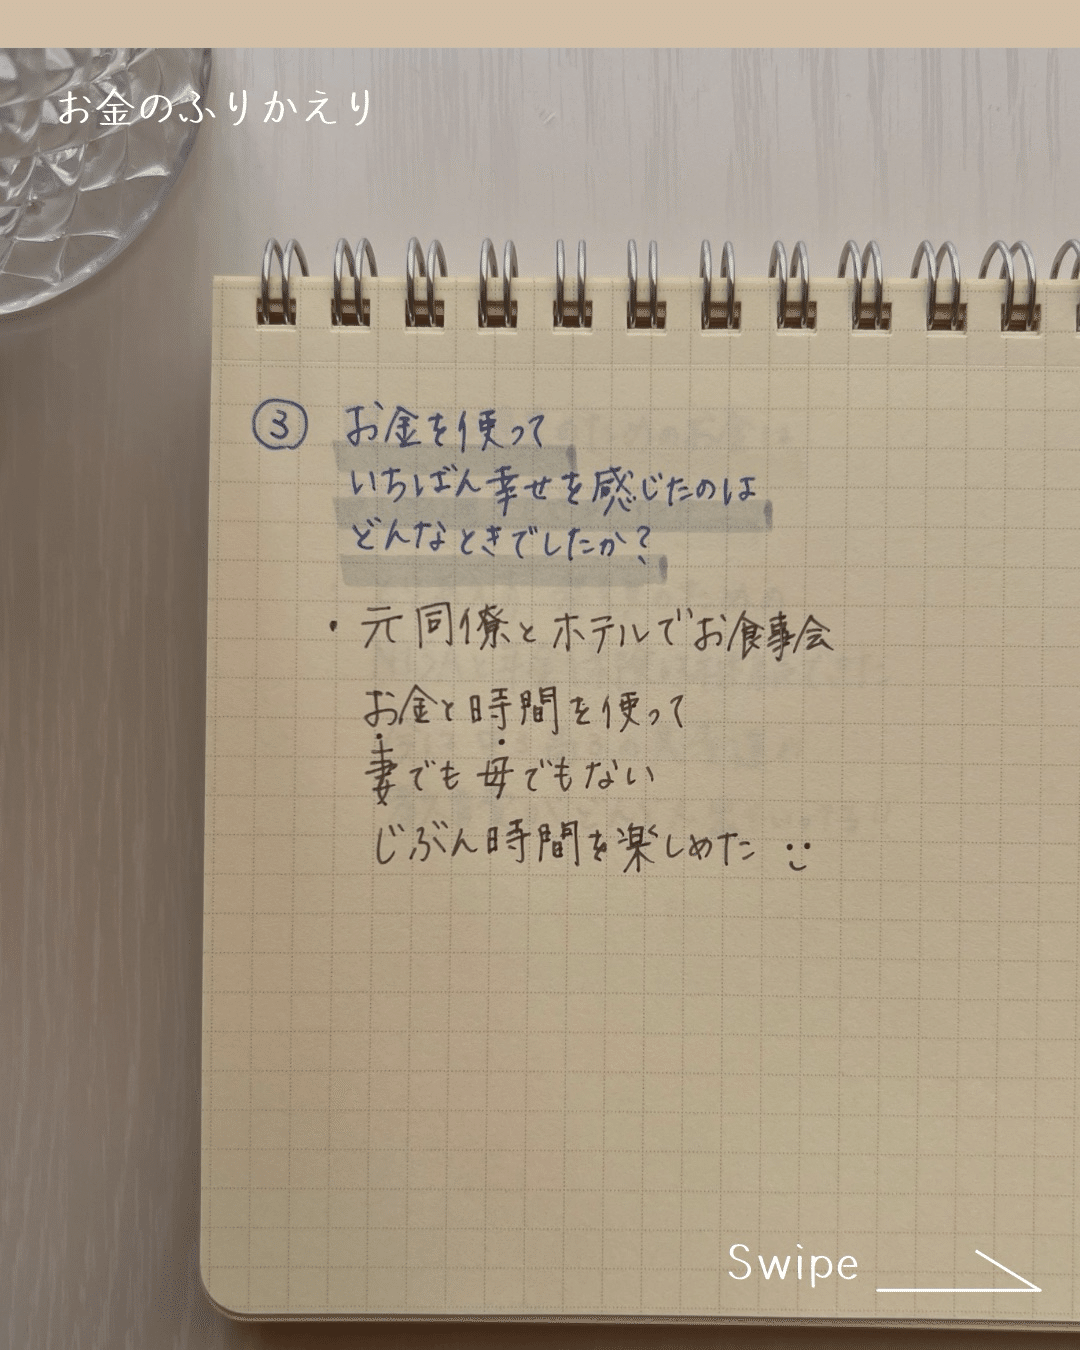 お金のふりかえり
③ お金を使って
いちばん幸せを感じたのは
どんなときでしたか?
・元同僚とホテルでお食事会
お金と時間を使って
妻でも母でもない
じぶん時間を楽しめた
Swipe